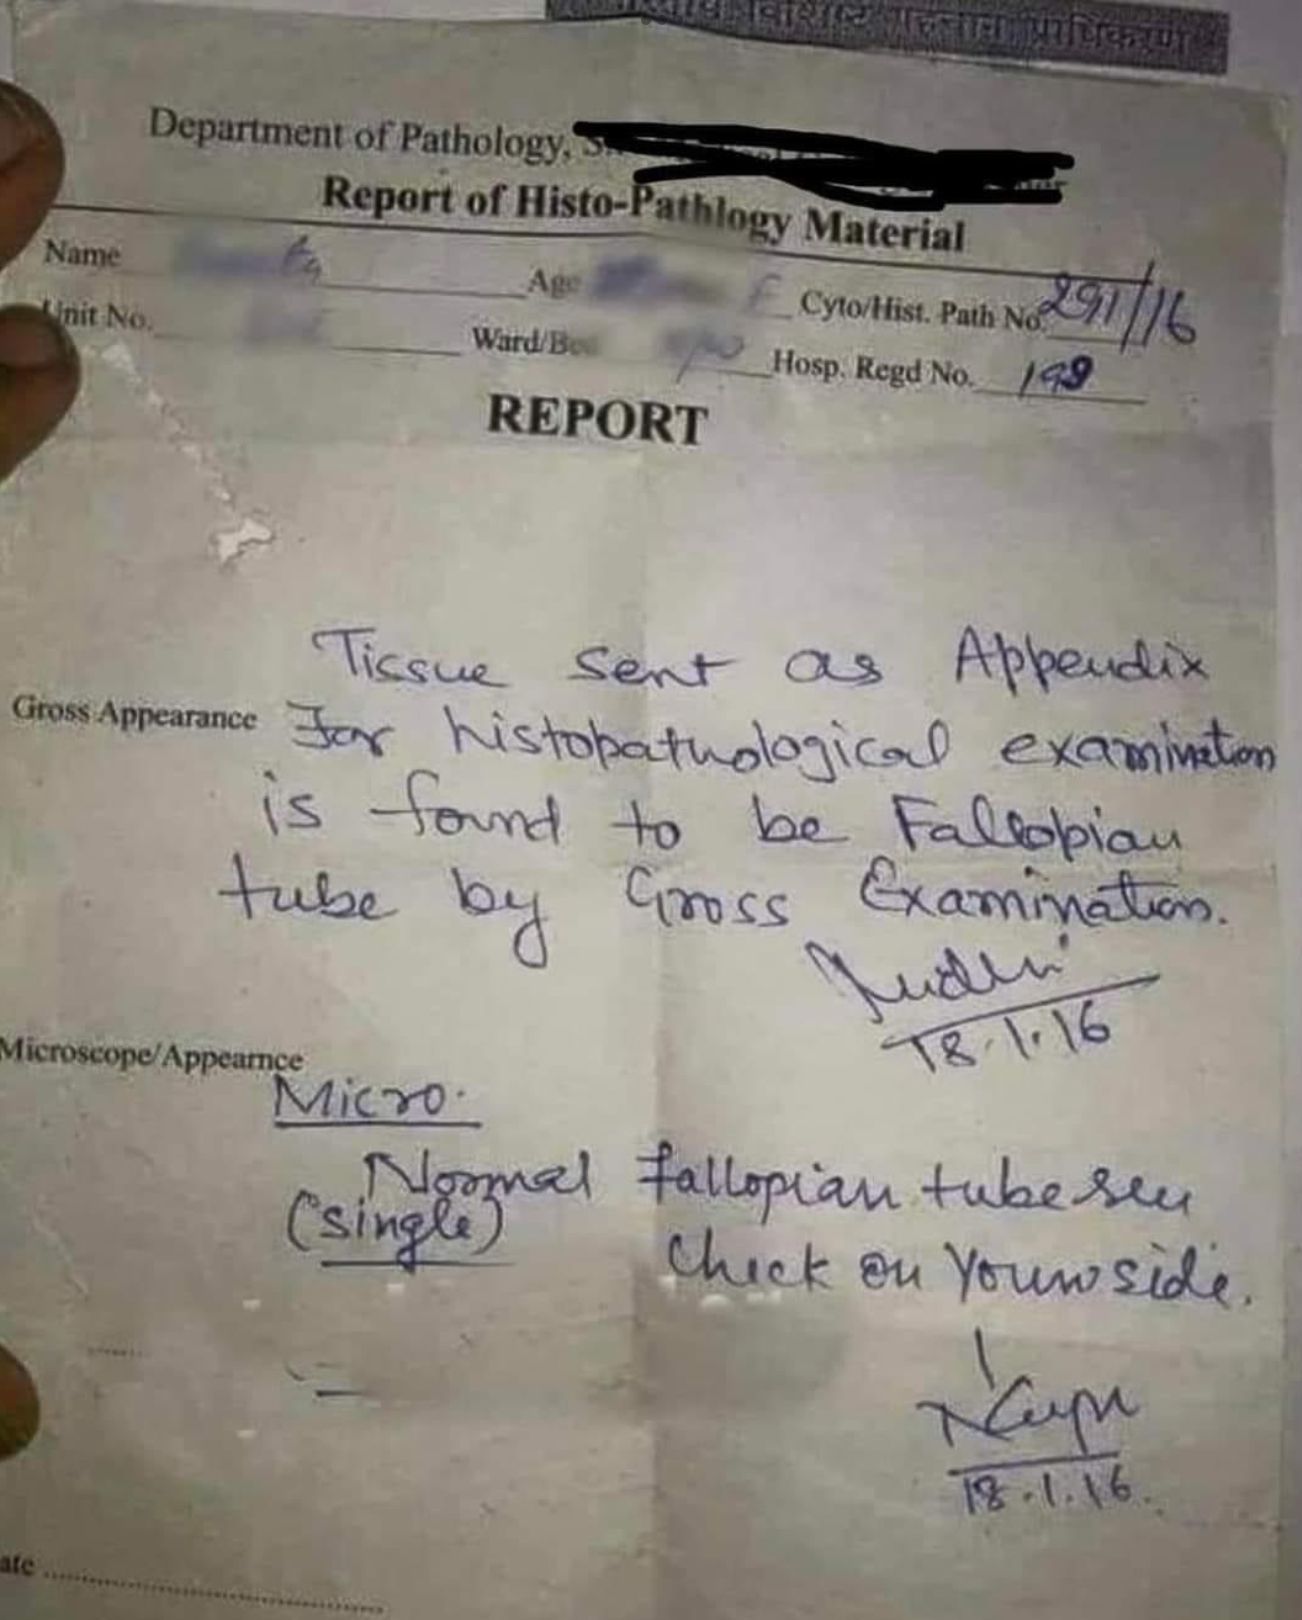 Department of Pathology,
Report of Histo-Pathlogy Material
Name Age F Cyto/Hist. Path No. 291/16
Unit No. Ward/Bed Hosp. Regd No. 199
REPORT
Tissue sent as Appendix
Gross Appearance For histopathological examination
is found to be Fallopian
tube by Gross Examination.
18.1.16
Microscope/Appearnce
Micro.
Normal fallopian tube seen
(single)
Check on your side.
18.1.16.
ate